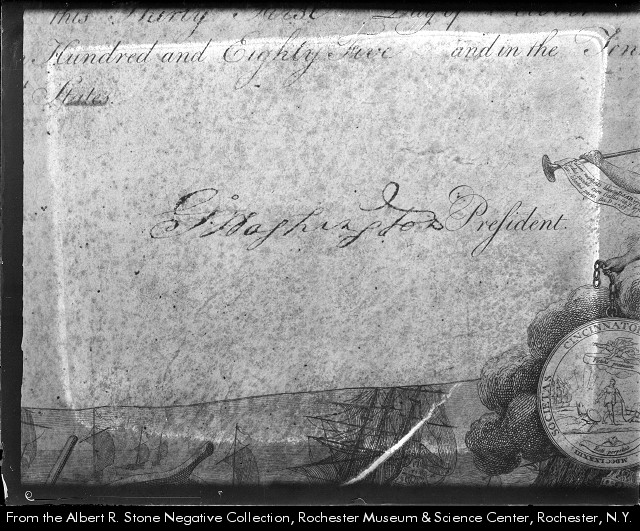 this Thirty First Day of
Hundred and Eighty Five and in the Ten
States.
G Washington Preſident.
SOCIETAS CINCINNATO
From the Albert R. Stone Negative Collection, Rochester Museum & Science Center, Rochester, N.Y.